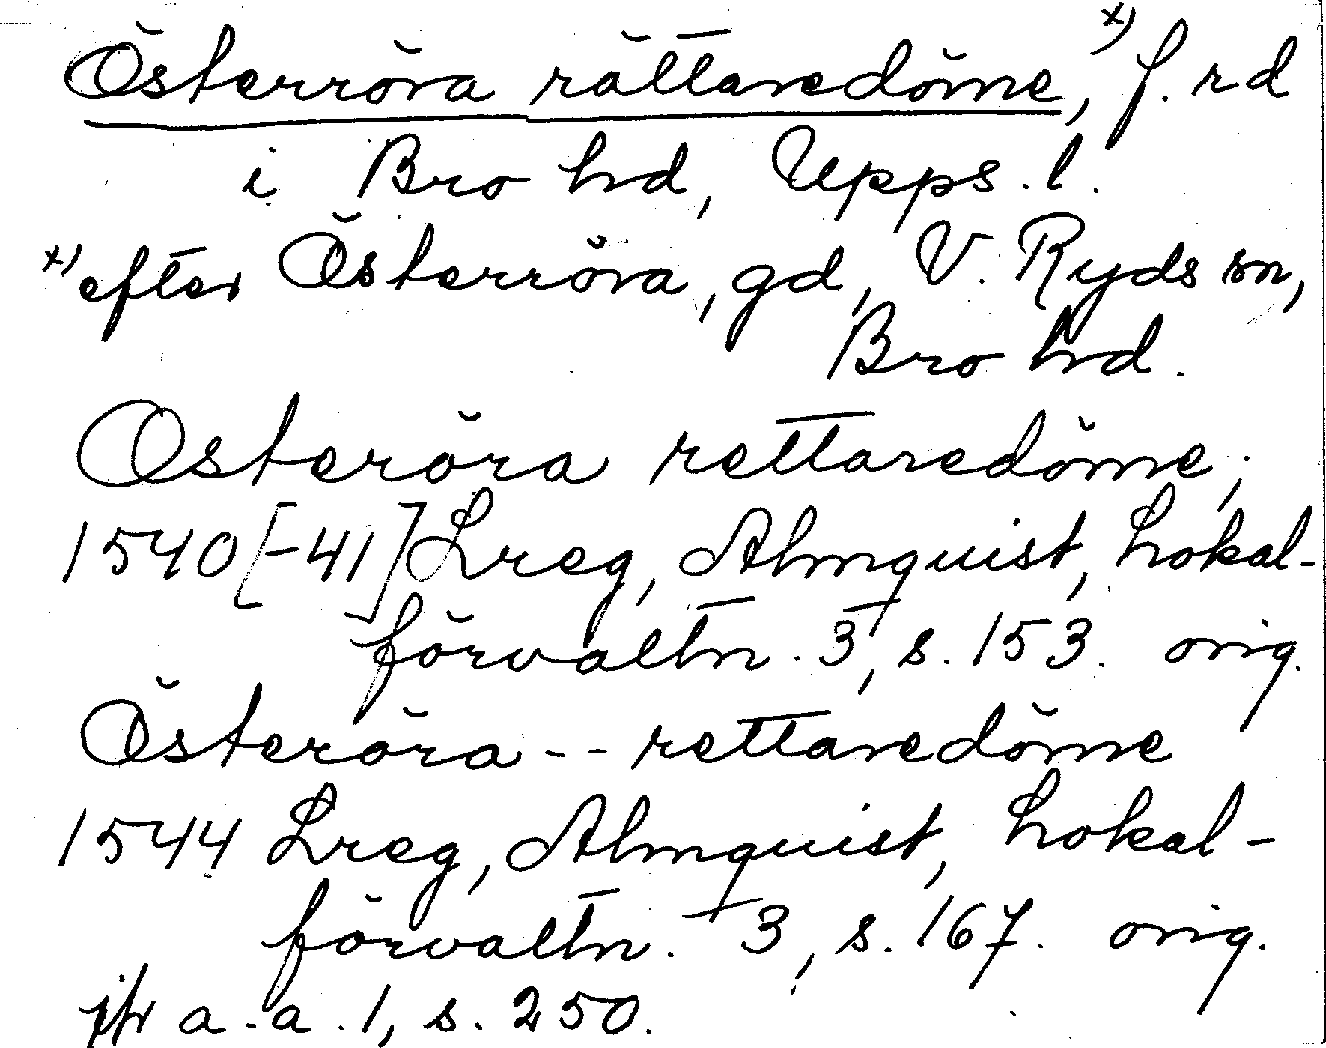 Österröra rättaredöme,ˣ⁾ f. rd
i Bro hd, Upps. l.
ˣ⁾ efter Österröra, gd, V. Ryds sn,
Bro hd.
Osteröra rettaredöme;
1540[-41] Lreg, Almquist, Lokal-
förvaltn. 3, s. 153. orig.
Österöra -- rettaredöme
1544 Lreg, Almquist, Lokal-
förvaltn. 3, s. 167. orig.
jfr a.a. 1, s. 250.